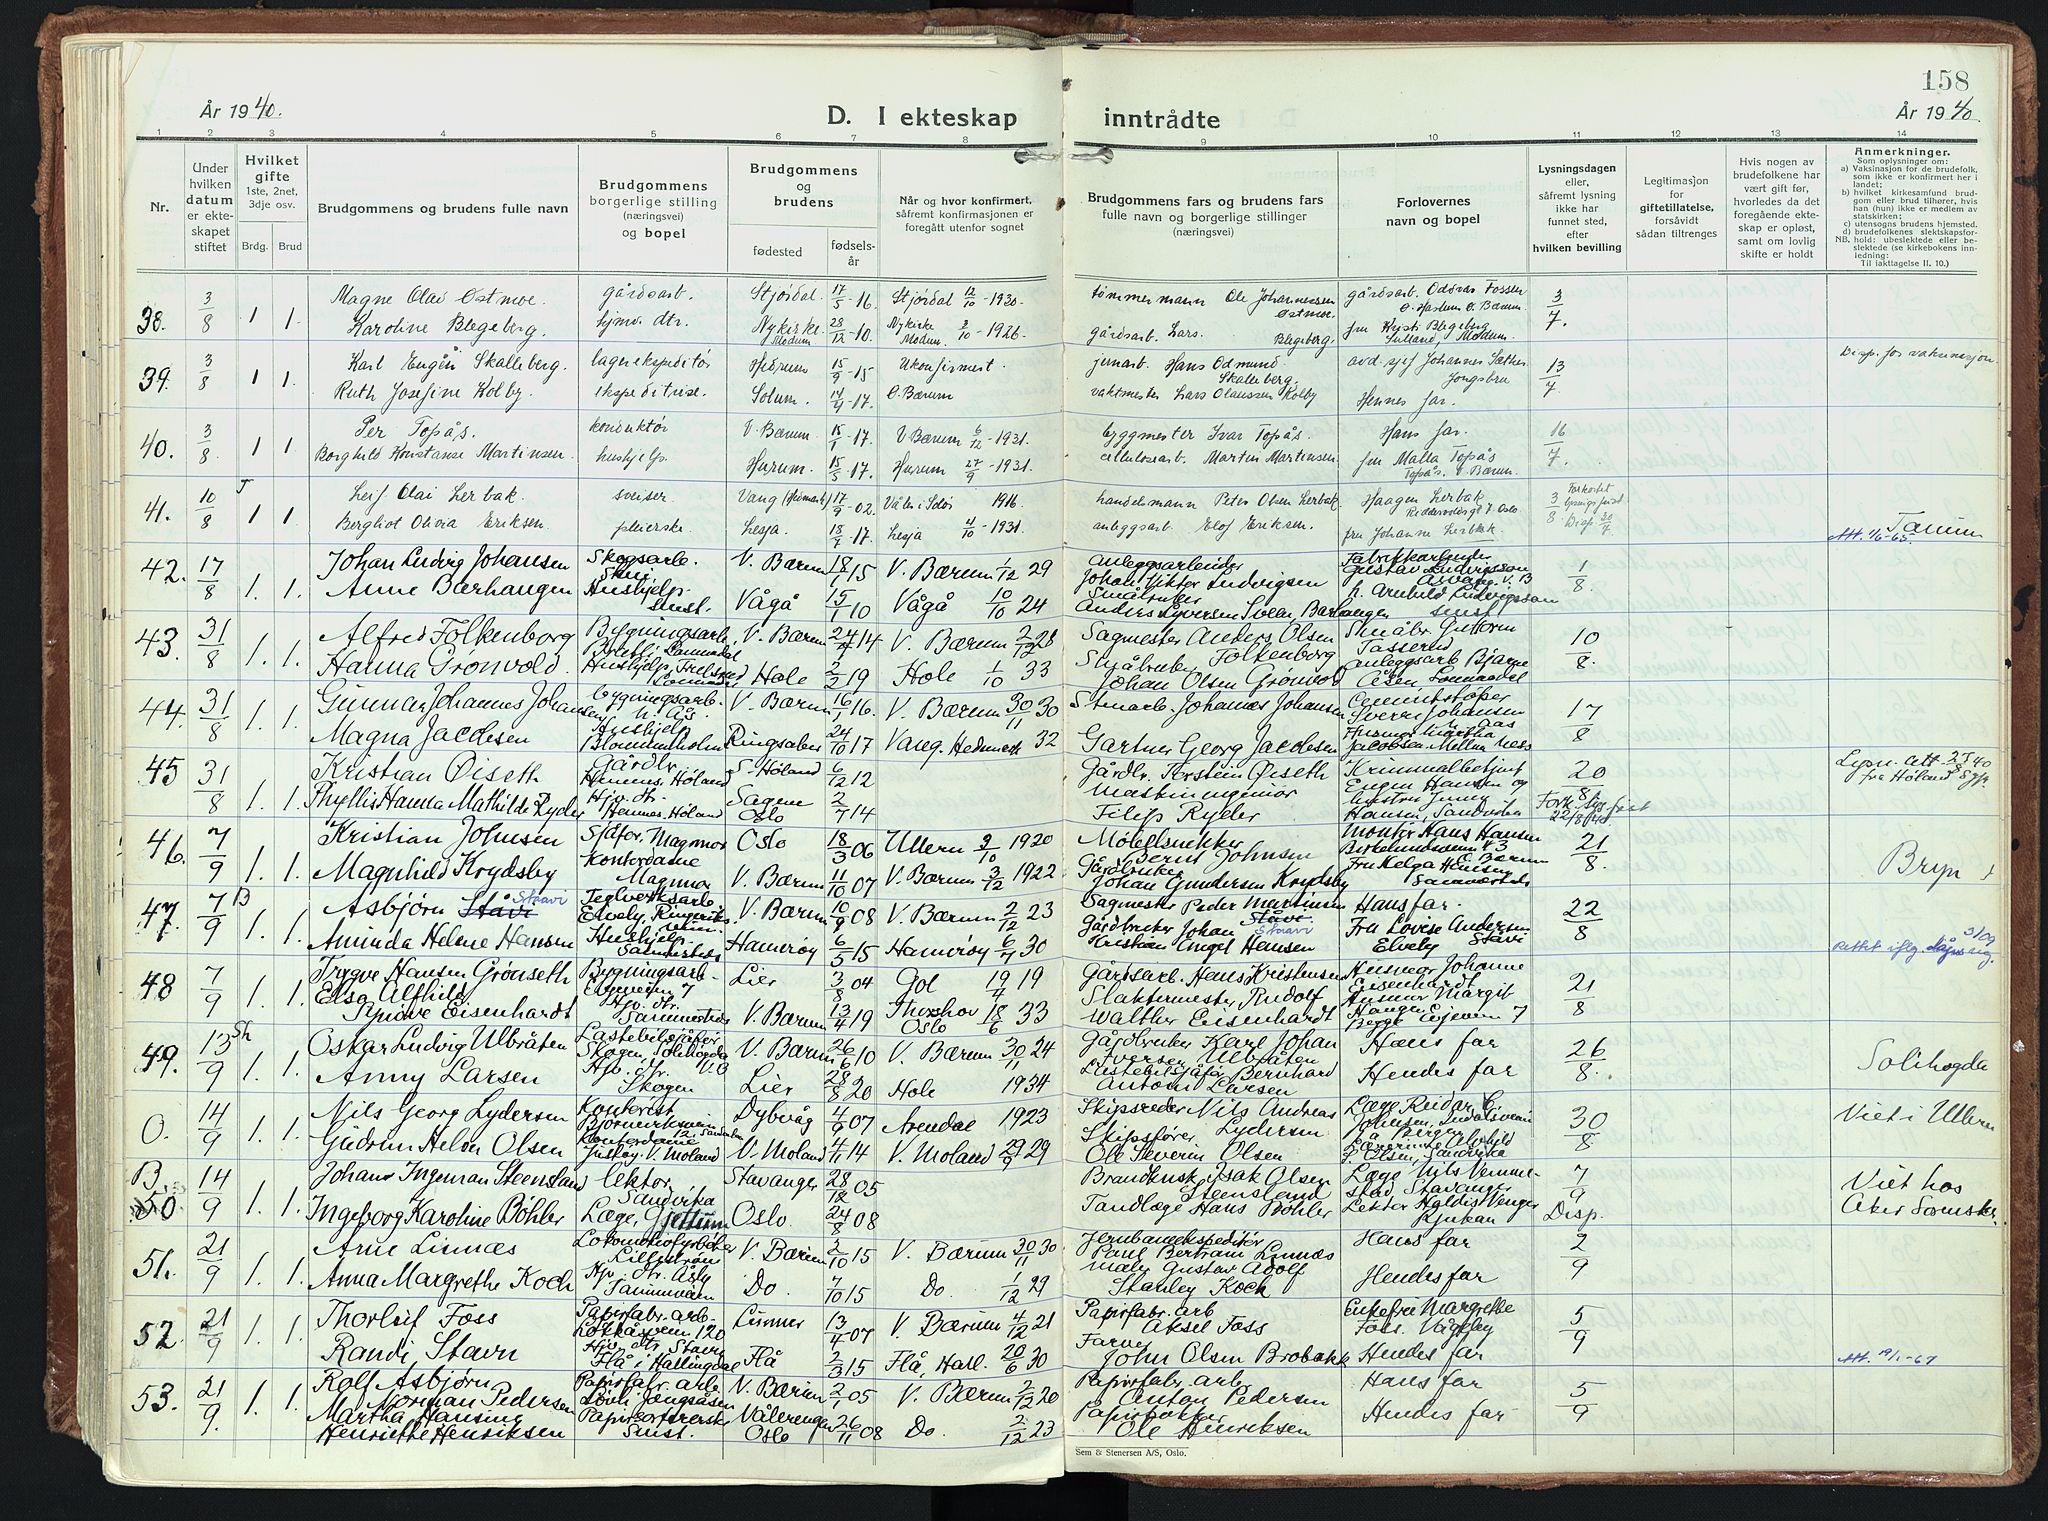 158
År 1940.
D. I ekteskap inntrådte
År 1940.
1 2 3 4 5 6 7 8 9 10 11 12 13 14
Nr.
Under hvilken datum er ekteskapet stiftet
Hvilket gifte
1ste, 2net, 3dje osv.
Brdg. Brud
Brudgommens og brudens fulle navn
Brudgommens borgerlige stilling (næringsvei) og bopel
Brudgommens og brudens
fødested
fødselsår
Når og hvor konfirmert, såfremt konfirmasjonen er foregått utenfor sognet
Brudgommens fars og brudens fars fulle navn og borgerlige stillinger (næringsvei)
Forlovernes navn og bopel
Lysningsdagen eller, såfremt lysning ikke har funnet sted, efter hvilken bevilling
Legitimasjon for giftetillatelse, forsåvidt sådan tiltrenges
Hvis nogen av brudefolkene har vært gift før, hvorledes da det foregående ekteskap er opløst, samt om lovlig skifte er holdt
Anmerkninger.
Som oplysninger om:
a) Vaksinasjon for de brudefolk, som ikke er konfirmert her i landet;
b) hvilket kirkesamfund brudgom eller brud tilhører, hvis han (hun) ikke er medlem av statskirken;
c) utensogns brudens hjemsted.
d) brudefolkenes slektskapsforhold: ubeslektede eller beslektede (se kirkebokens innledning:
NB. Til iakttagelse II. 10.)
38. 3/8 1 1. Magne Olai Østmoe. gårdsarb. Stjørdal 17/5-16 Stjørdal 12/10-1930. tømmermann Ole Johannessen Østmoe. gårdsarb. Oddvar Fossen Ø. Haslum Ø. Bærum. 3/7.
Karoline Blegeberg. hjmv. dtr. Nykirke Modum 28/12-10. Nykirke Modum. 3/10-1926. gårdsarb. Lars Blegeberg. fru Kysti Blegeberg Modum.
39. 3/8 1 1. Karl Engân Skalleberg. lagerekspeditør Hedrum 15/9-15 Ukonfirmert. jernarb. Hans Odmund Skalleberg. avd. sjef Johannes Sæther Jongsbru 13/7 Disp. for vaksinasjon
Ruth Josefine Kolby. ekspeditrise. Solum. 14/4-17. Ø. Bærum vaktmester Lars Olaussen Kolby Hennes far.
40. 3/8 1 1 Per Topås. konduktør V. Bærum. 15/1-17. V Bærum 6/12-1931. byggmester Ivar Topås. Hans far. 16/7.
Borghild Konstanse Martinsen. hushjelp. Hurum. 15/5-17. Hurum 27/9-1931. cellulosearb. Martin Martinsen. fru Malla Topås Topås. V. Bærum.
41. 10/8 T 1 1 Leif Olai Lerbak. sveiser Vang (Hedmark) 17/9-02. Våler i Solør 1916 handelsmann Peter Olsen Lerbak. Haagen Lerbak Riddervoldsgt 7. Oslo 3/8 Forkortet lysningsfrist Disp 30/7.
Bergliot Olivia Eriksen. pleierske Lesja. 18/7-17. Lesja 4/10-1931. anleggsarb. Elof Eriksen. fru Johanne Lerbak. Att. 1/6-65. Tanum
42. 17/8 1. 1. Johan Ludvig Johansen Skogsarb. V. Bærum 18/1 15 V. Bærum 1/12 29 Anleggsarbeider Johan Viktor Ludvigsen Fabrikkarbeider Gustav Ludvigsson V. B 1/8
Anne Barhaugen Hushjelp smst. Vågå 15/1 10 Vågå 10/10 24 Småbruker Anders Syversen Barhaugen Arnhild Ludvigsson smst.
43. 31/8 1. 1. Alfred Folkenborg Bygningsarb. V. Bærum 24/7 14 V. Bærum 2/12 28 Sagmester Anders Olsen Folkenborg Småbr. Guttorm Tasserud 10/8.
Hanna Grønvold. Hushjelp, Hole 2/2 19 Hole 1/10 33 Småbruker Johan Olsen Grønvold anleggsarb Bjarne Olsen Lommedal
44. 31/8 1. 1. Gunnar Johannes Johansen bygningsarb. V. Bærum 16/1 16. V. Bærum 30/11 30 Stenarb. Johannes Johansen Cementstøper Sverre Johansen 17/8
Magna Jacobsen Hushjelp Blommenholm Ringsaker 24/10 17 Vang. Hedmark 32 Gartner Georg Jacobsen Husmor Martha Jacobsen
45 31/8 1. 1. Kristian Øiseth Gårdbr. Hemnes, Høland S. Høland 6/12 12 Gårdbr. Torstein Øiseth Kriminalbetjent Eugen Hansen og 20/8. Lysn. att. fra Høland
Phyllis Hanna Mathilde Ryder Hjv. dtr. Hemnes, Høland Sagene Oslo 2/7 14 Maskiningeniør Filip Ryder hustru Jenny Hansen, Sandvika Fork. lys. frist 22/8
46. 7/9 1. 1. Kristian Johnsen Sjåfør, Magnor Oslo 18/3 06 Ullern 3/10 1920 Møbelsnekker Bernt Johnsen Montør Hans Hansen 21/8. Bryn
Magnhild Krydsby Kontordame Magnor V. Bærum 11/10 07 V. Bærum 3/12 1922 Gårdbruker Johan Gundersen Krydsby Fru Helga Hansen
47. 7/9 B 1. 1. Asbjørn Ståvi Stavi Teglverksarb. Elvely, Ringeriksveien V. Bærum 10/9 08 V. Bærum 2/12 23 Sagmester Peder Martinius Ståvi. Stavi Hans far. 22/8
Aminda Helene Hansen Hushjelp Sammesteds Hamarøy 6/5 15 Hamarøy 6/7 30 Gårdbruker Johan Kristian Angel Hansen Fru Lovise Andersen Stavi Elvely Rettet iflg.
48 7/9 1. 1. Trygve Hansen Grønseth Bygningsarb. 7 Lier 3/8 04 Gol 19/7 19 Gårdsarb. Hans Kristensen Husmor Johanne Eisenhardt 21/8
Elsa Alfhild Synøve Eisenhardt Hjv. dtr. Sammesteds V. Bærum 13/4 19 Torshov Oslo 18/6 33 Slaktermester Rudolf Walther Eisenhardt Husmor Margit Haugen Begge 7
49. 13/9 Sh 1. 1. Oskar Ludvig Ulbråten Lastebilsjåfør Skogen, Solihøgda V. B V. Bærum 26/6 10 V. Bærum 30/11 24 Gårdbruker Karl Johan Iversen Ulbråten Hans far 26/8. Solihøgda
Anny Larsen Hjv. dtr. Skogen Lier 28/8 20 Hole 1934 Lastebilsjåfør Bernhard Antoni Larsen Hendes far
O. 14/9 1. 1. Nils Georg Lydersen Kontorist Dybvåg 4/9 07 Arendal 1923 Skipsreder Nils Andreas Lydersen Læge Reidar C. Johnsen, 30/8 Viet i Ullern
Gudrun Helen Olsen Kontordame V. Moland V. Moland 4/11 14 V. Moland 29/9 29 Skipsfører Ole Severin Olsen Olsen, Sandvika
B. 50 14/9 1. 1. Johan Ingeman Steensland lektor, Sandvika Stavanger 28/12 05 Brandkusk Isak Olsen Steensland Læge Nils Vemmestad, Stavanger 7/9 Viet hos
Ingeborg Karoline Bøhler Læge, Gjettum Oslo. 24/8 08 Tandlæge Hans Bøhler Lektor Haldis Wenger Rjukan Disp. Aker Sorensk.
51. 21/9 1. 1. Arne Linnæs Lokomotivfyrbøter Lillestrøm V. Bærum 2/10 15 V. Bærum 30/11 30 Jernbaneekspeditør Paul Bertram Linnæs Hans far 2/9
Anna Margrethe Koch Hjv. dtr. Åsly Tanumveien Do. 7/10 15 Do. 1/12 29 Maler Gustav Adolf Stanley Koch Hendes far
52. 21/9 1. 1. Thorleif Foss Papirfabr. arb. Løkkåsveien 120 Lunner 13/4 07 V. Bærum 4/12 21 Papirfabr. arb Aksel Foss Enkefru Margrethe Foss. 5/9
Randi Stavn Hjv. dtr. Stavn Flå i Hallingdal Flå 2/3 15 Flå, Hall. 20/6 30 Farver John Olsen Brobakk Hendes far Att. 19/1-67
53. 21/9. 1. 1. Rolf Asbjørn Norman Pedersen Papirfabr. arb. Jongsåsen V. Bærum 2/1 05 V. Bærum 2/12 20 Papirfabr. arb. Anton Pedersen Hans far 5/9
Martha Hansine Henriette Henriksen Papirsortererske Smst. Vålerengen Oslo 26/11 08 Do 2/12 23 Papirpakker Ole Henriksen Hendes far
Sem & Stenersen A/S, Oslo.